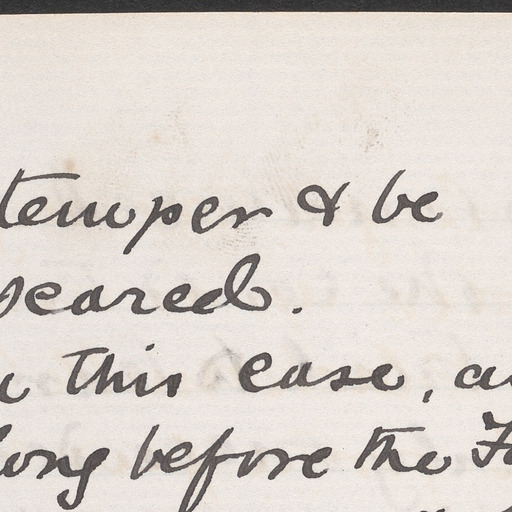 temper & be
scared.
this case,
long before the